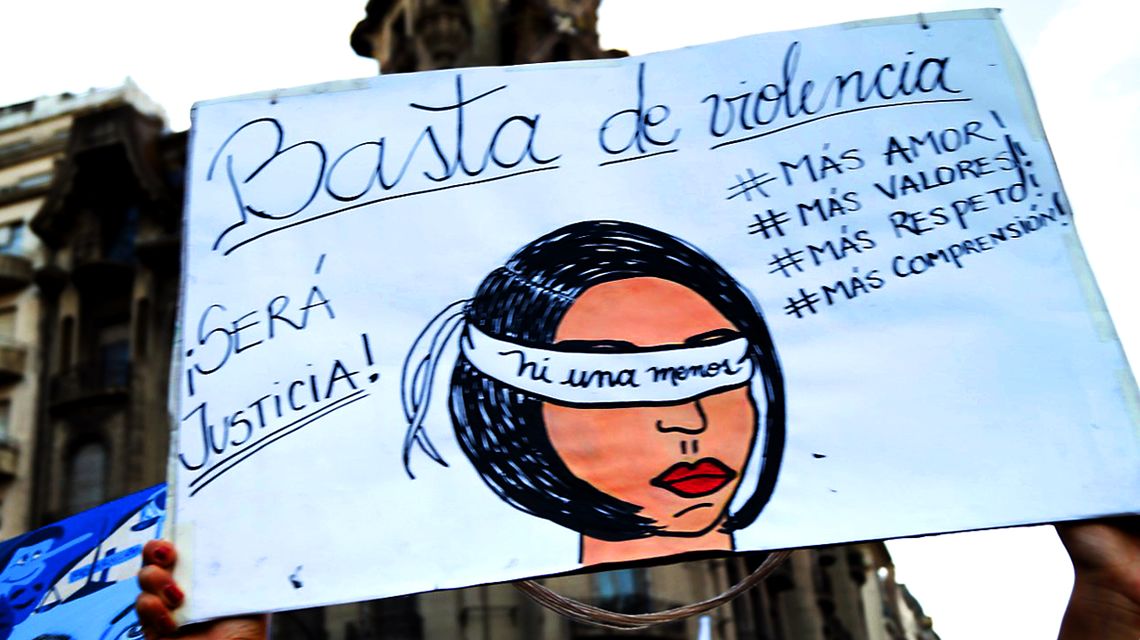 Basta de violencia
#MÁS AMOR!
#MÁS VALORES!
#MÁS RESPETO!
#MÁS COMPRENSIÓN!
¡SERÁ
JUSTICIA!
ni una menos